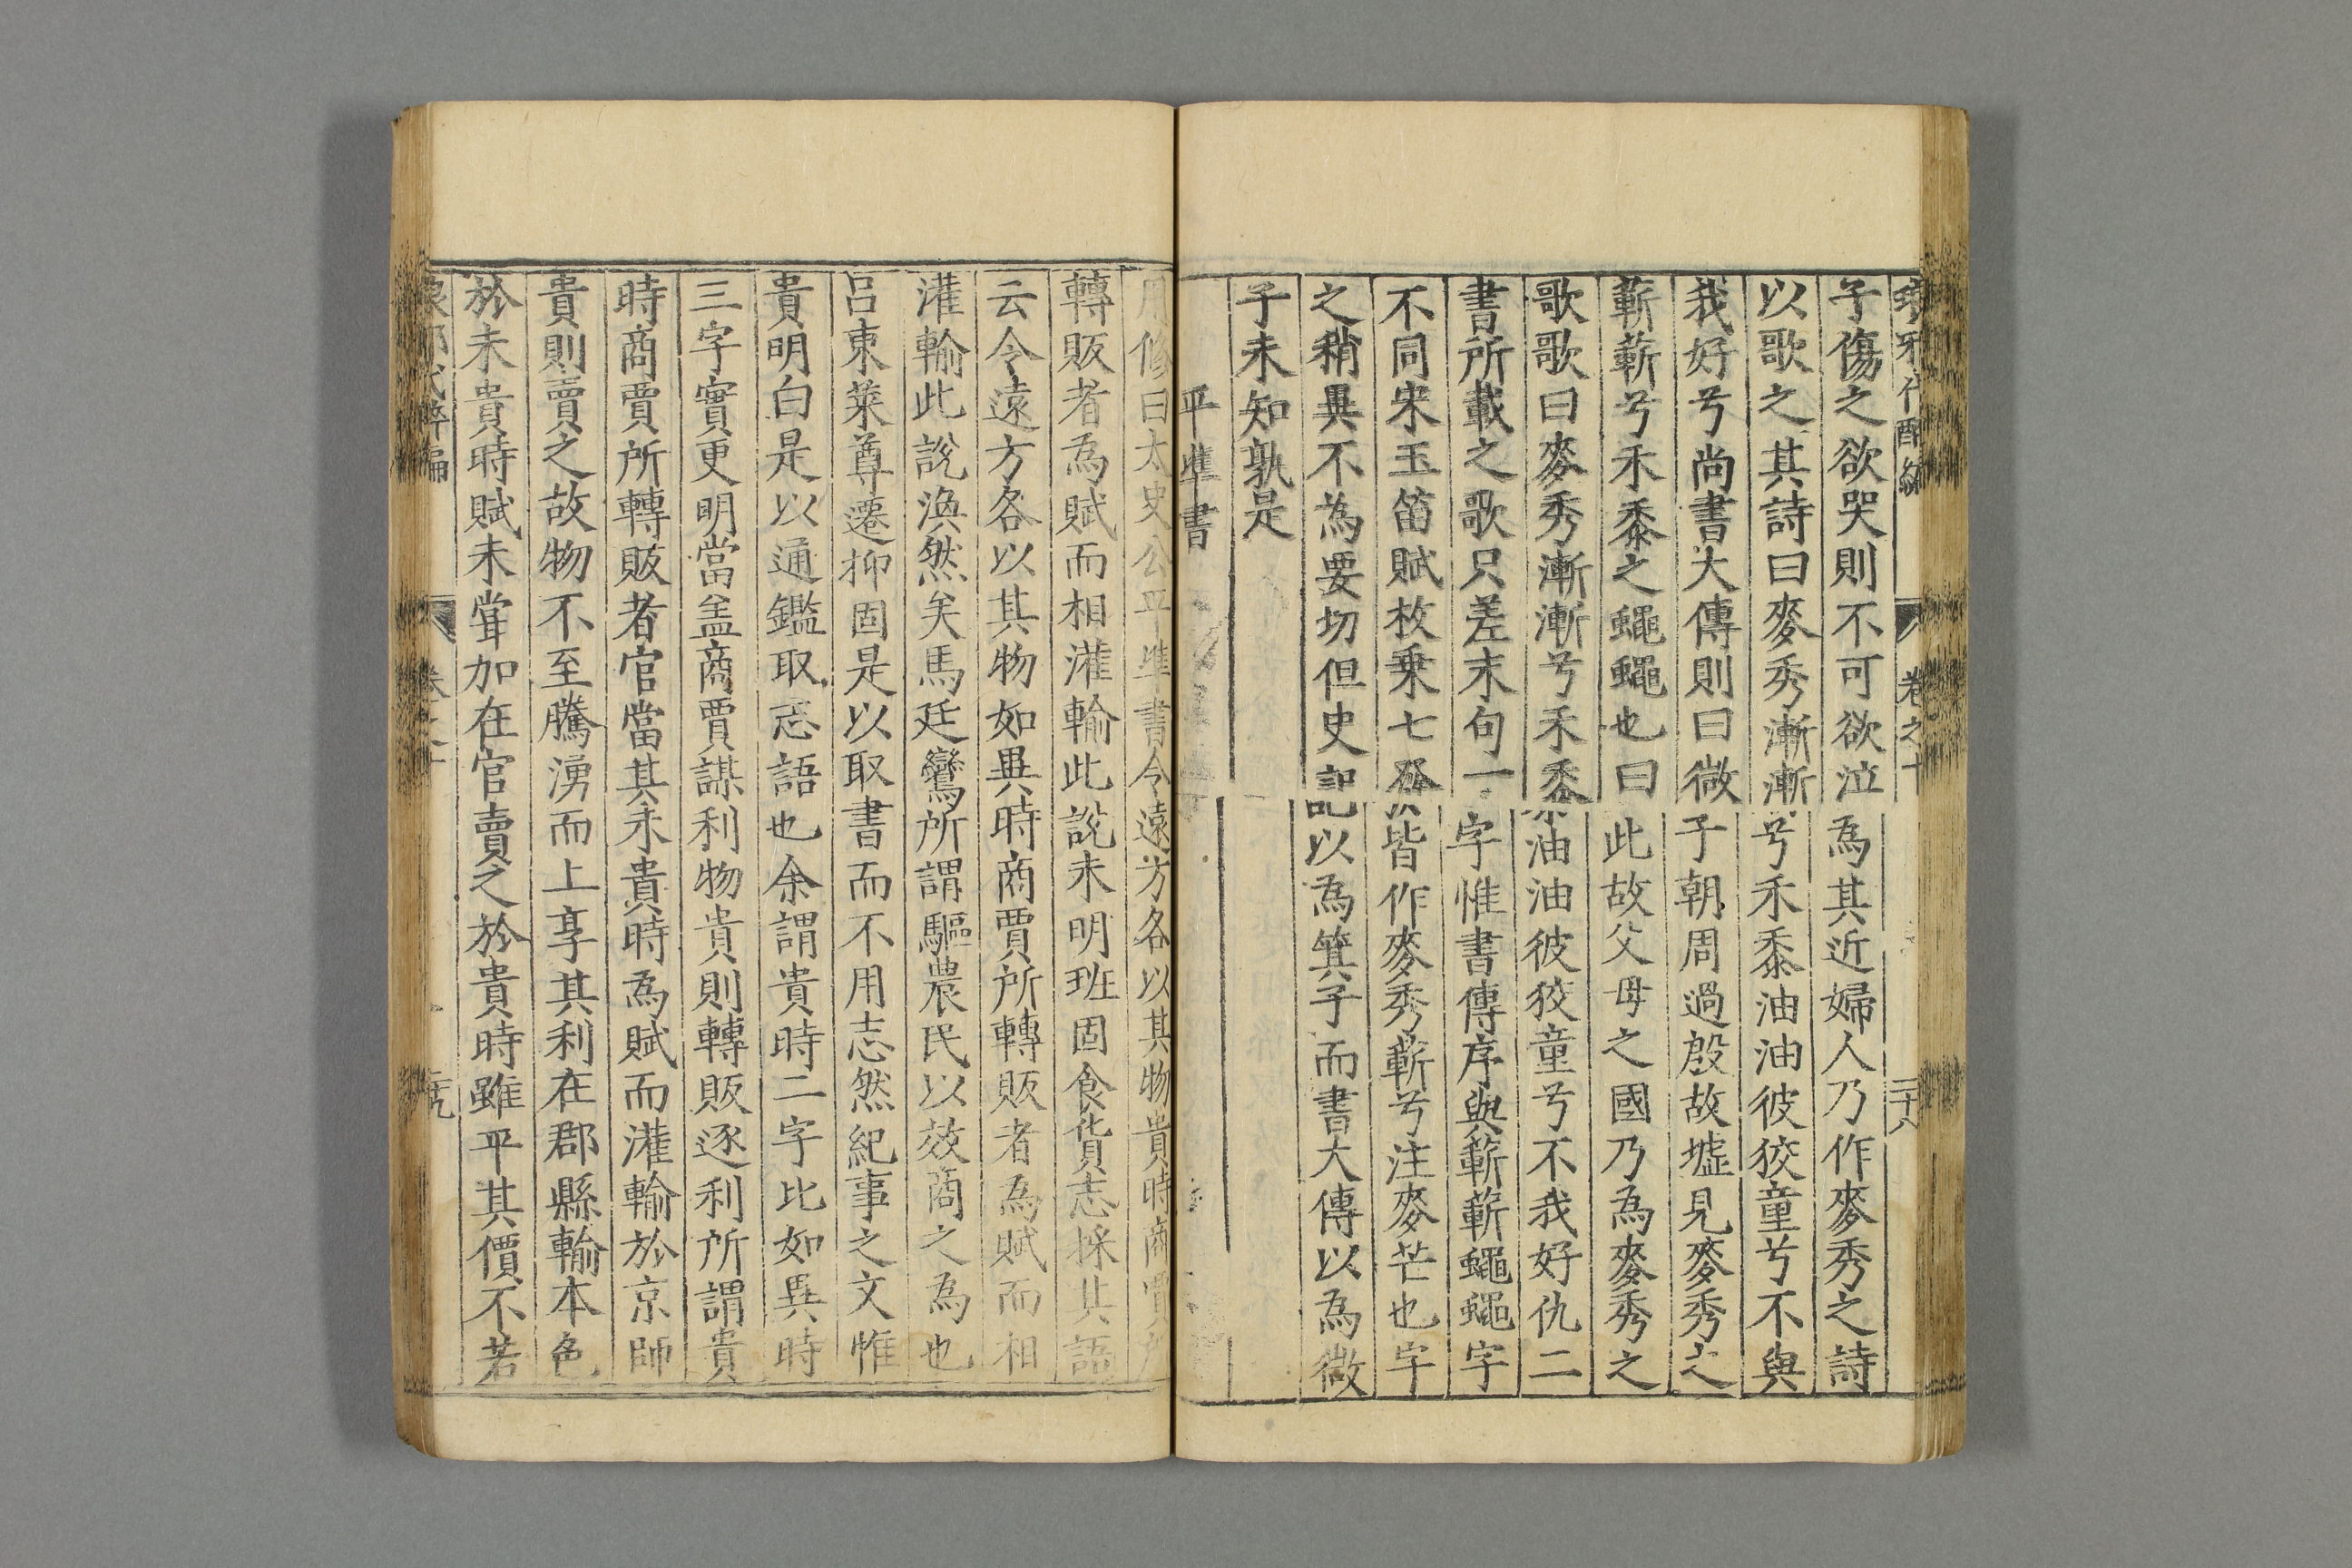 琅邪代醉編 卷之十 二十八
子傷之欲哭則不可欲泣為其近婦人乃作麥秀之詩
以歌之其詩曰麥秀漸漸兮禾黍油油彼狡童兮不與
我好兮尚書大傳則曰微子朝周過殷故墟見麥秀之
蔪蔪兮禾黍之蠅蠅也曰此故父母之國乃為麥秀之
歌歌曰麥秀漸漸兮禾黍油油彼狡童兮不我好仇二
書所載之歌只差末句一字惟書傳序與蔪蔪蠅蠅字
不同宋玉笛賦枚乗七發皆作麥秀蔪兮注麥芒也字
之稍異不為要切但史記以為箕子而書大傳以為微
子未知孰是
平準書
用修曰太史公平準書令遠方各以其物貴時商賈所
轉販者為賦而相灌輸此說未明班固食貨志採其語
云令遠方各以其物如異時商賈所轉販者為賦而相
灌輸此說渙然矣馬廷鸞所謂驅農民以效商之為也
呂東萊尊遷抑固是以取書而不用志然紀事之文惟
貴明白是以通鑑取志語也余謂貴時二字比如異時
三字實更明當盖商賈謀利物貴則轉販逐利所謂貴
時商賈所轉販者官當其未貴時為賦而灌輸於京師
貴則賣之故物不至騰湧而上享其利在郡縣輸本色
於未貴時賦未甞加在官賣之於貴時雖平其價不若
琅邪代醉編 卷之十 二十九